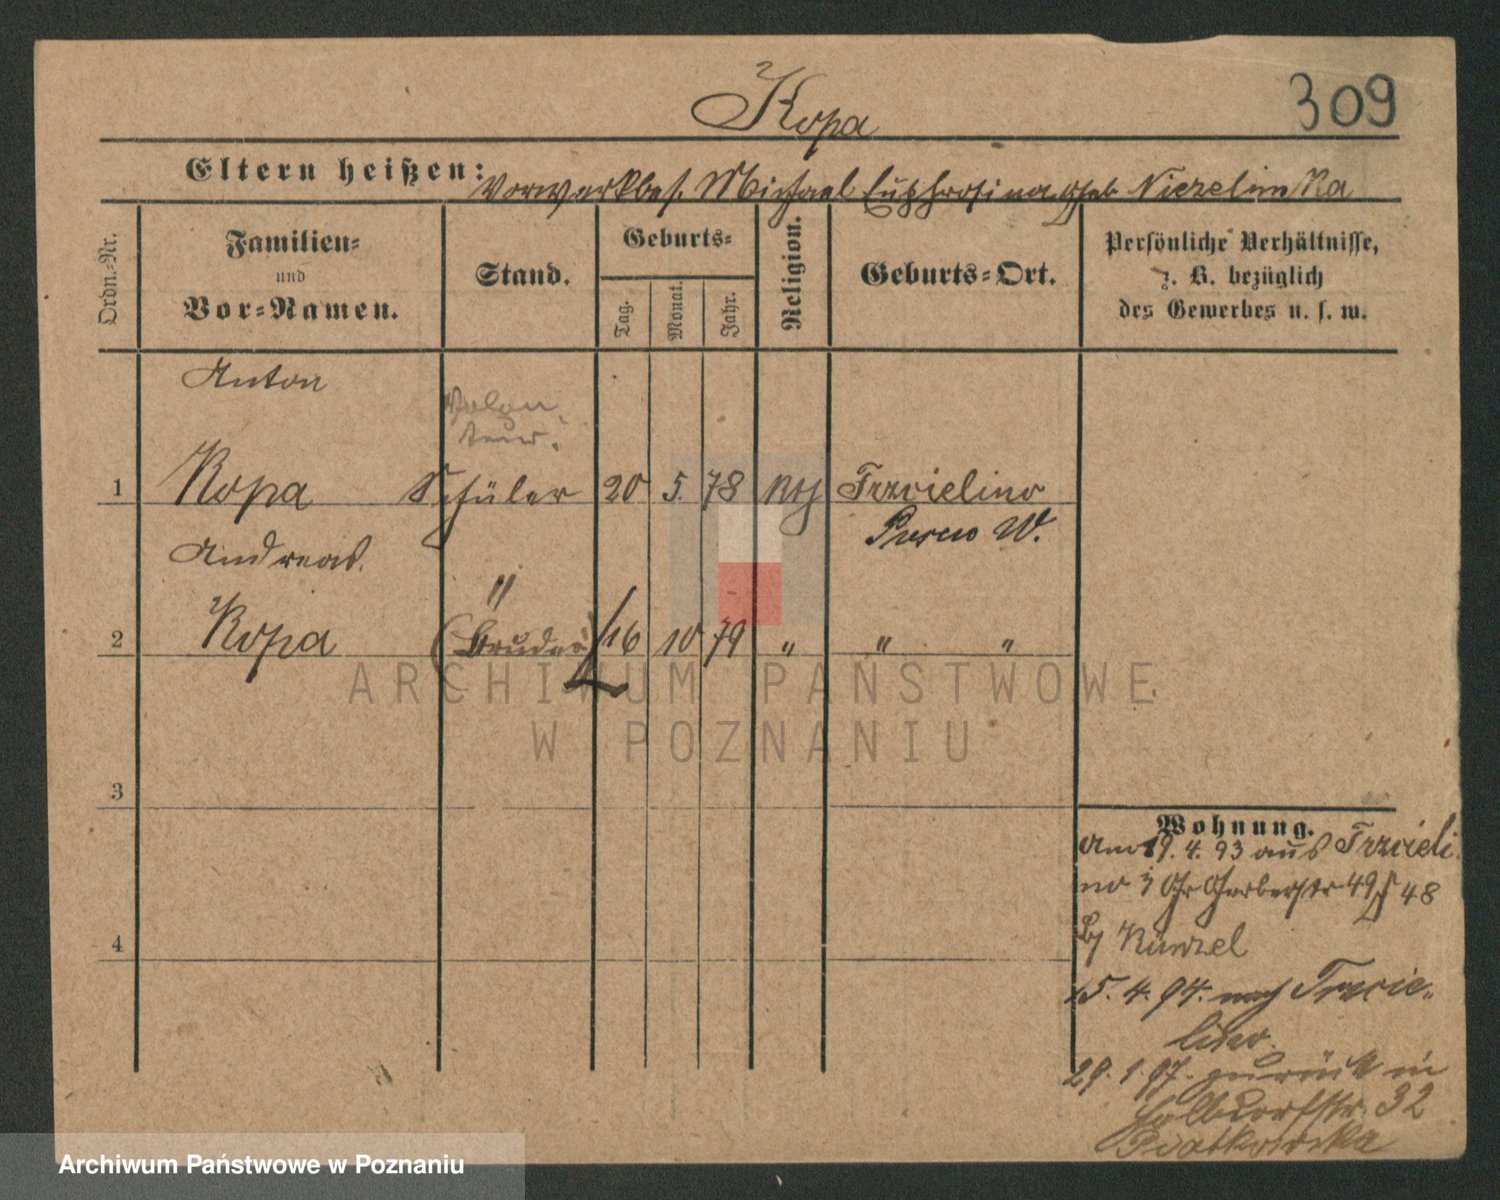 Kopa
309
Eltern heißen: Vorwerkbes. Michael Euphrosina geb Niezelinska
Ordn.-Nr.
Familien-
und
Vor-Namen.
Stand.
Geburts-
Tag.
Monat.
Jahr.
Religion.
Geburts-Ort.
Persönliche Verhältnisse,
z. B. bezüglich
des Gewerbes u. s. w.
Anton
Volon
teur.
1 Kopa Schüler 20 5. 78 Trzcielino
W.
Andreas.
"
2 Kopa (Bruder) 16 10 79 " " "
3
4
Wohnung.
Am 19. 4. 93 aus Trzcieli
no Gerberstr 49 48
bj Künzel
15. 4. 94. nach Trzcie-
lino.
29. 1. 97. zurück in
Halbdorfstr. 32
Piatkowska
ARCHIWUM PAŃSTWOWE
W POZNANIU
Archiwum Państwowe w Poznaniu